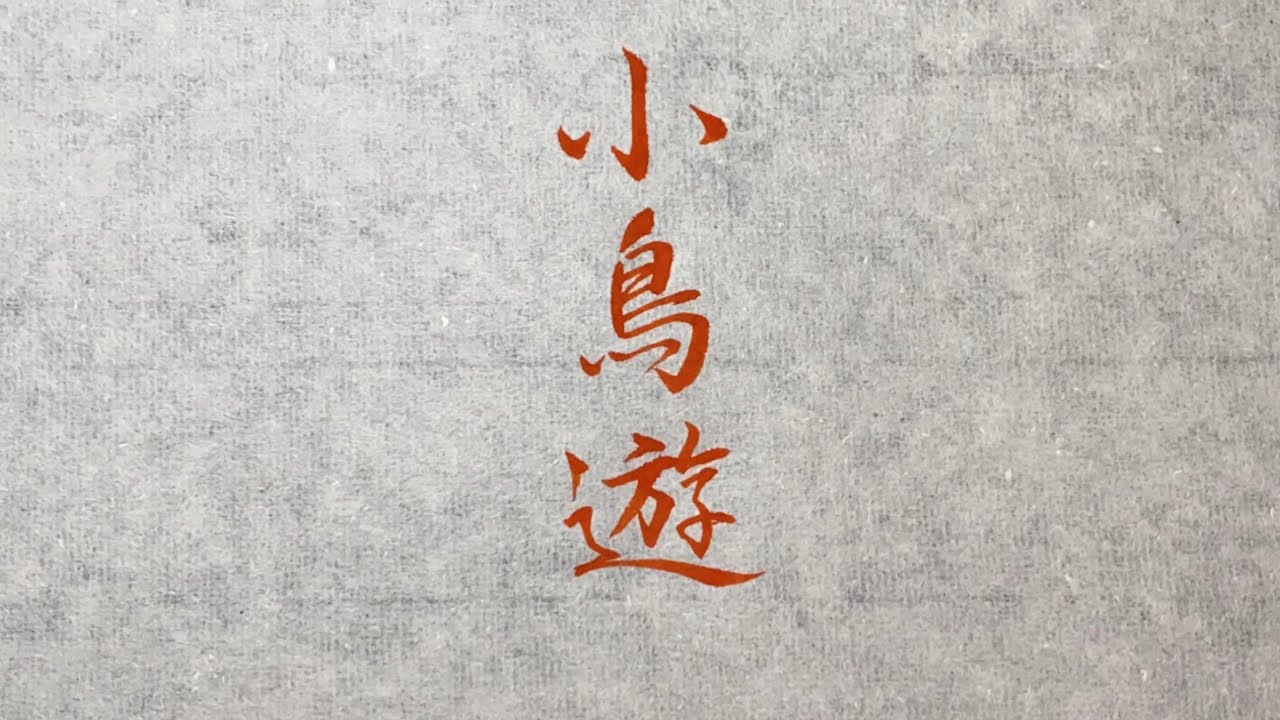 小鳥遊